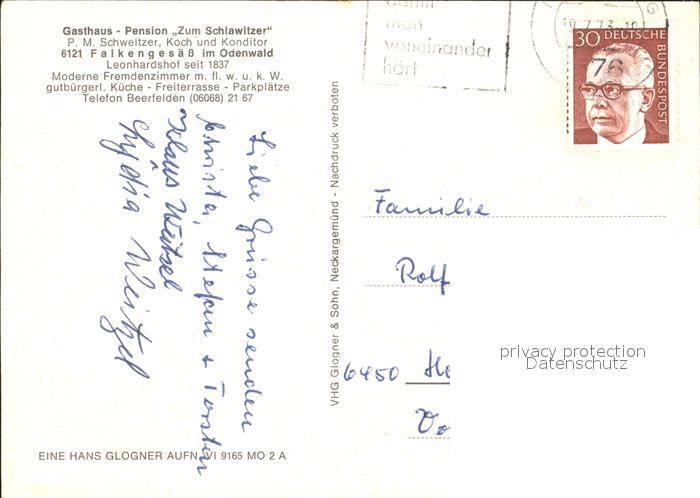 Gasthaus - Pension „Zum Schlawitzer"
P. M. Schweitzer, Koch und Konditor
6121 Falkengesäß im Odenwald
Leonhardshof seit 1837
Moderne Fremdenzimmer m. fl. w. u. k. W.
gutbürgerl. Küche - Freiterrasse - Parkplätze
Telefon Beerfelden (06068) 21 67
damit
man
voneinander
hört
30 DEUTSCHE
BUNDESPOST
76
Liebe Grüsse senden
Christa, Stefan + Torsten
Klaus Weitzel
Lydia Weitzel
VHG Glogner & Sohn, Neckargemünd - Nachdruck verboten
Familie
Rolf
6450
privacy protection
Datenschutz
EINE HANS GLOGNER AUFN. VI 9165 MO 2 A